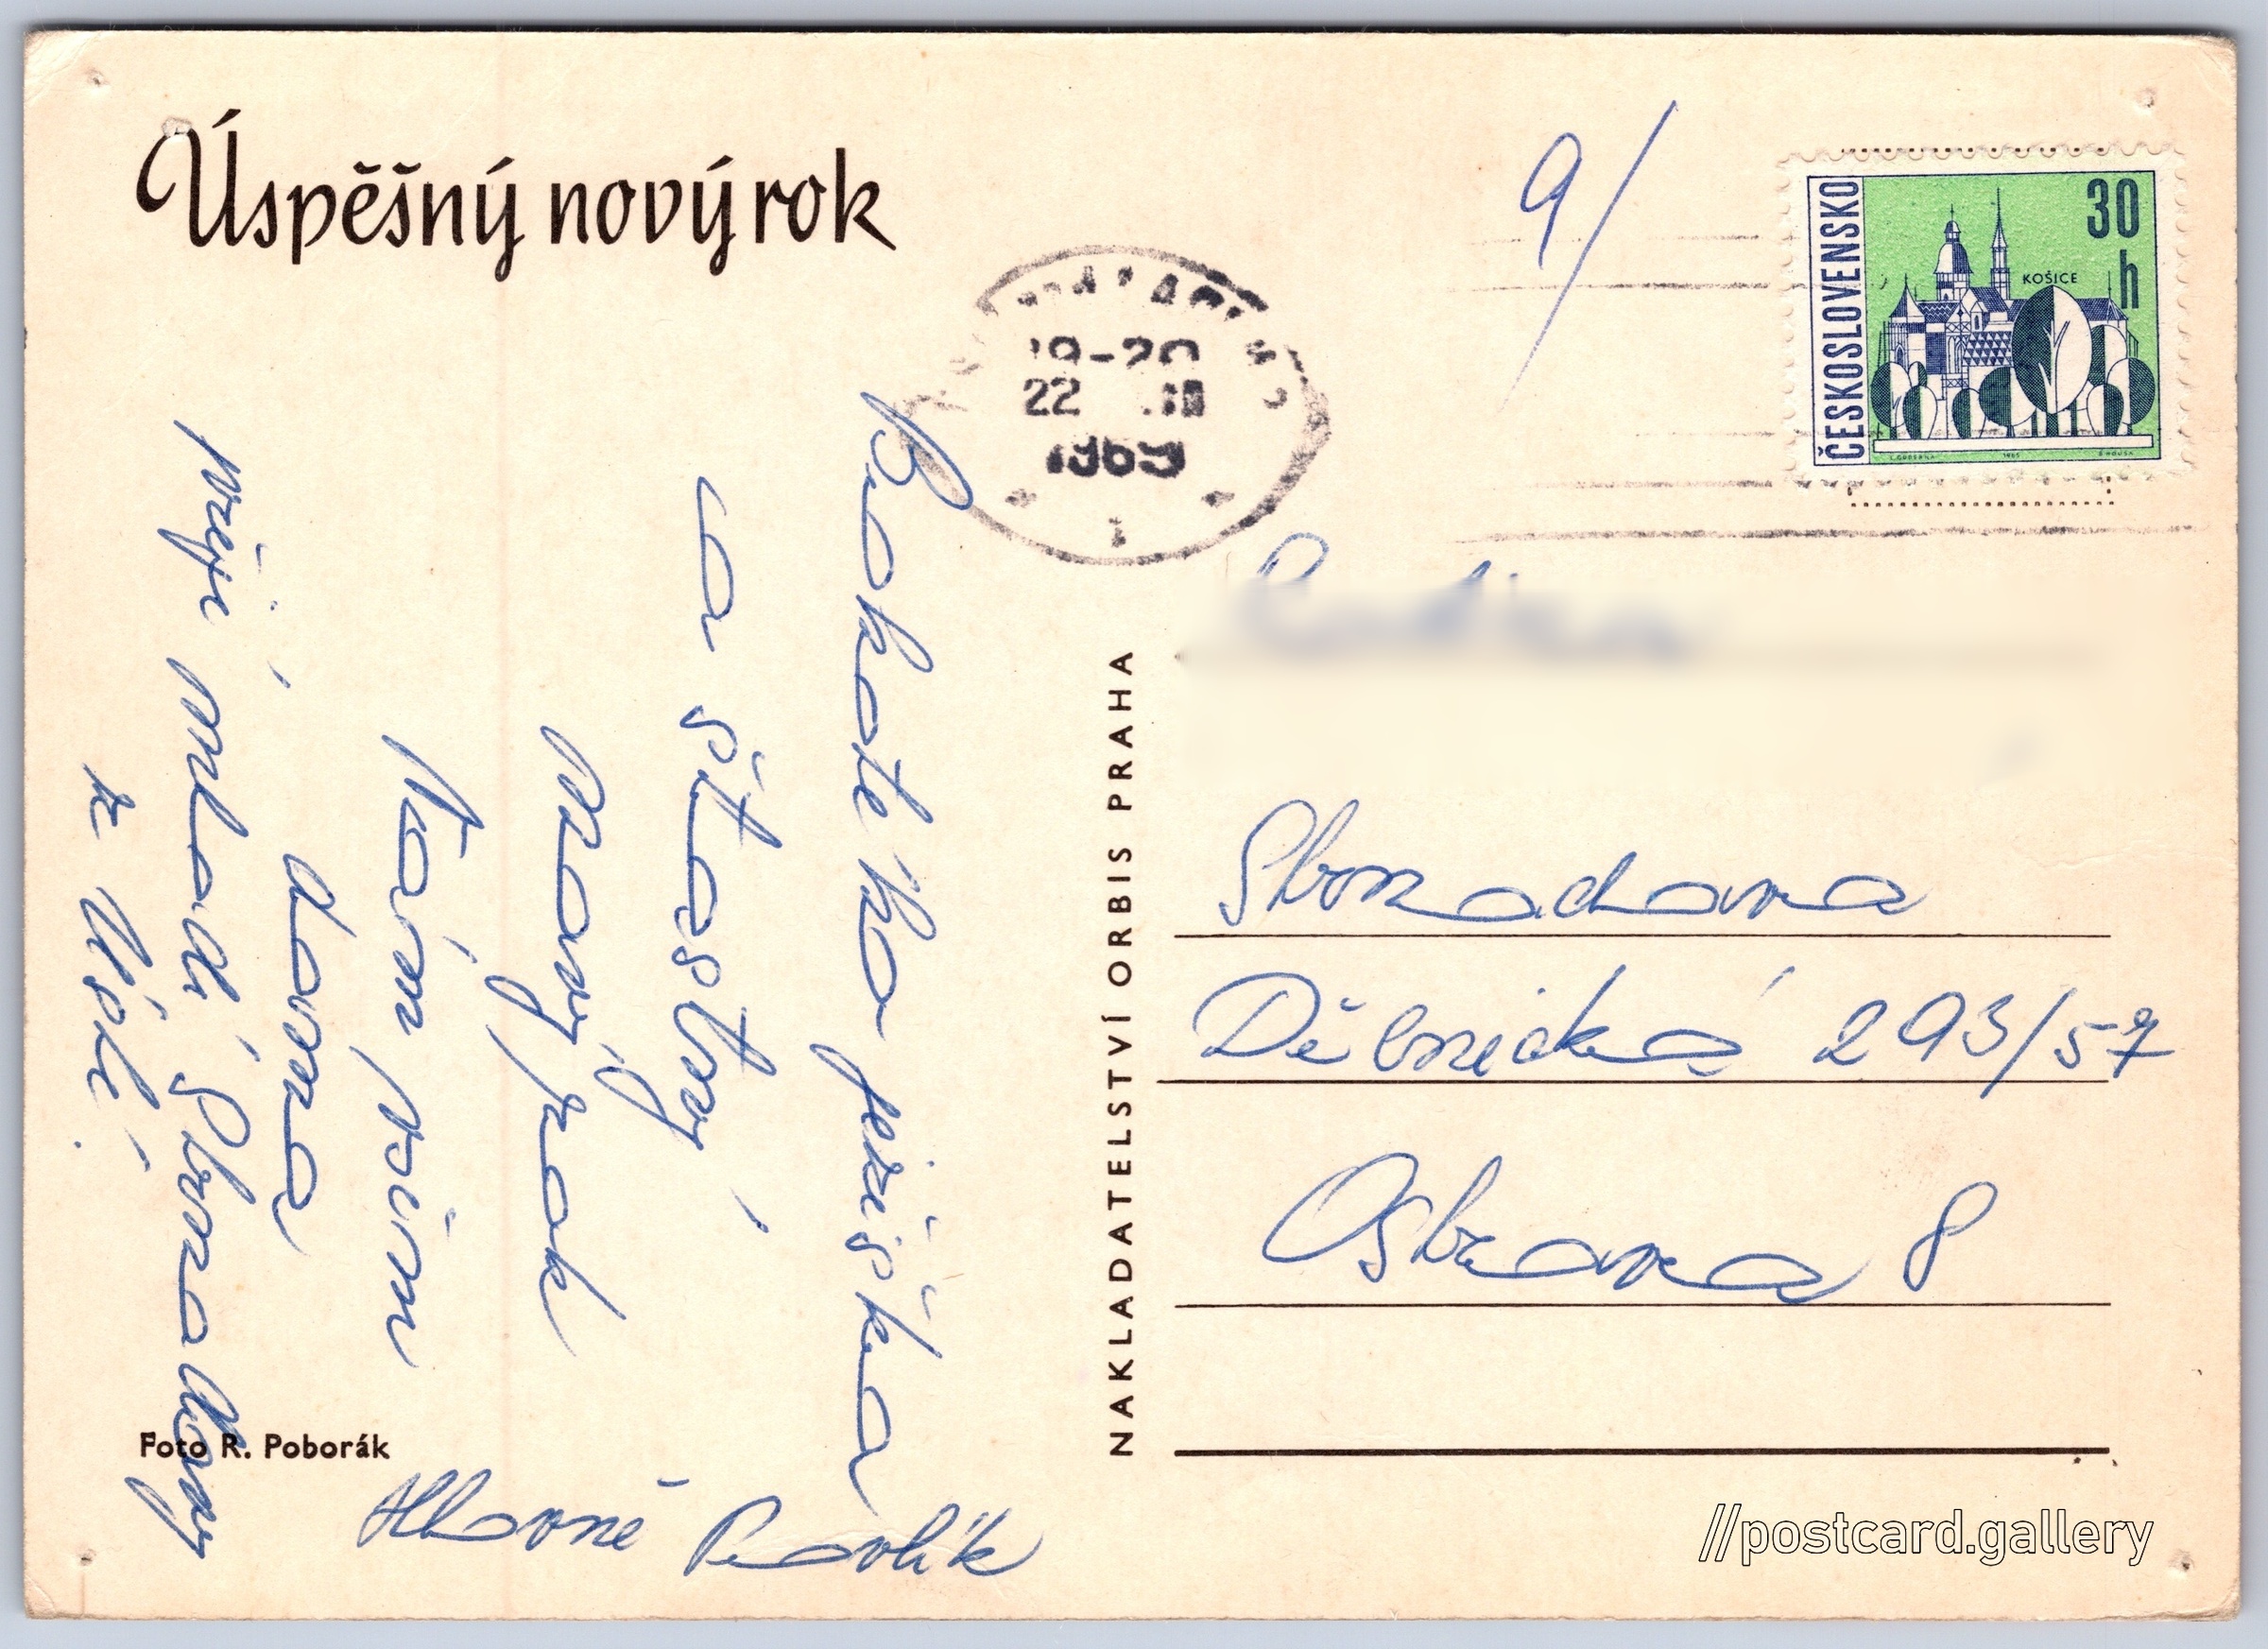 Úspěšný nový rok
Bohatého ježíška
a šťastný
nový rok
Vám všem
doma
přeji mladí
z Ústí.
Hlavně Pavlík
Foto R. Poborák
NAKLADATELSTVÍ ORBIS PRAHA
9/
19-20
22
1969
1
ČESKOSLOVENSKO
30
h
KOŠICE
Dělnická 293/57
Ostrava 8
//postcard.gallery